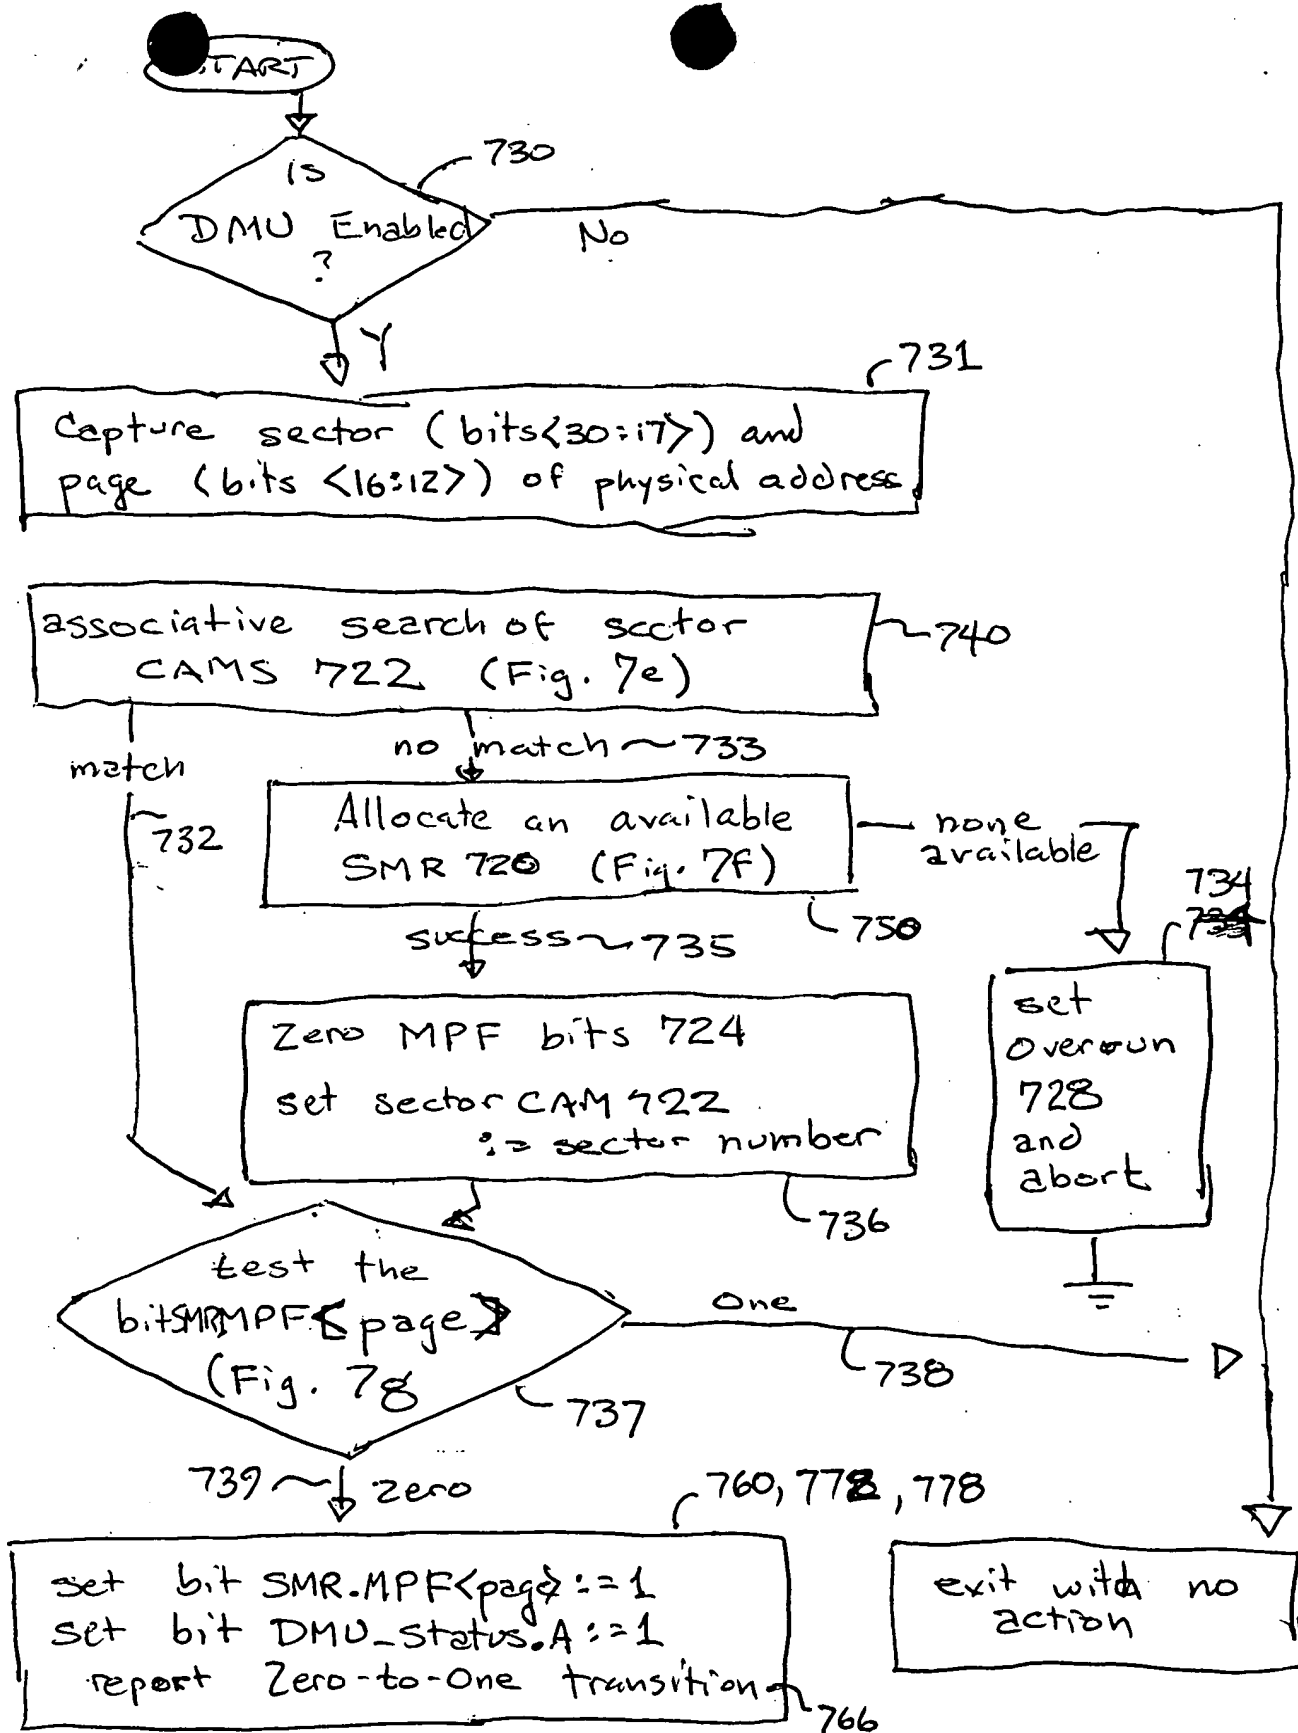 START
is
730
DMU Enabled
?
No
Y
731
Capture sector (bits<30:17>) and
page (bits <16:12>) of physical address
associative search of sector
CAMS 722 (Fig. 7e)
740
match
732
no match 733
Allocate an available
SMR 720 (Fig. 7f)
750
none
available
734
success 735
Zero MPF bits 724
set sector CAM 722
:= sector number
736
set
overrun
728
and
abort
test the
bit SMR.MPF<page>
(Fig. 7g
737
One
738
739
zero
760, 772, 778
set bit SMR.MPF<page> :=1
set bit DMU_Status.A :=1
report Zero-to-One transition
766
exit with no
action